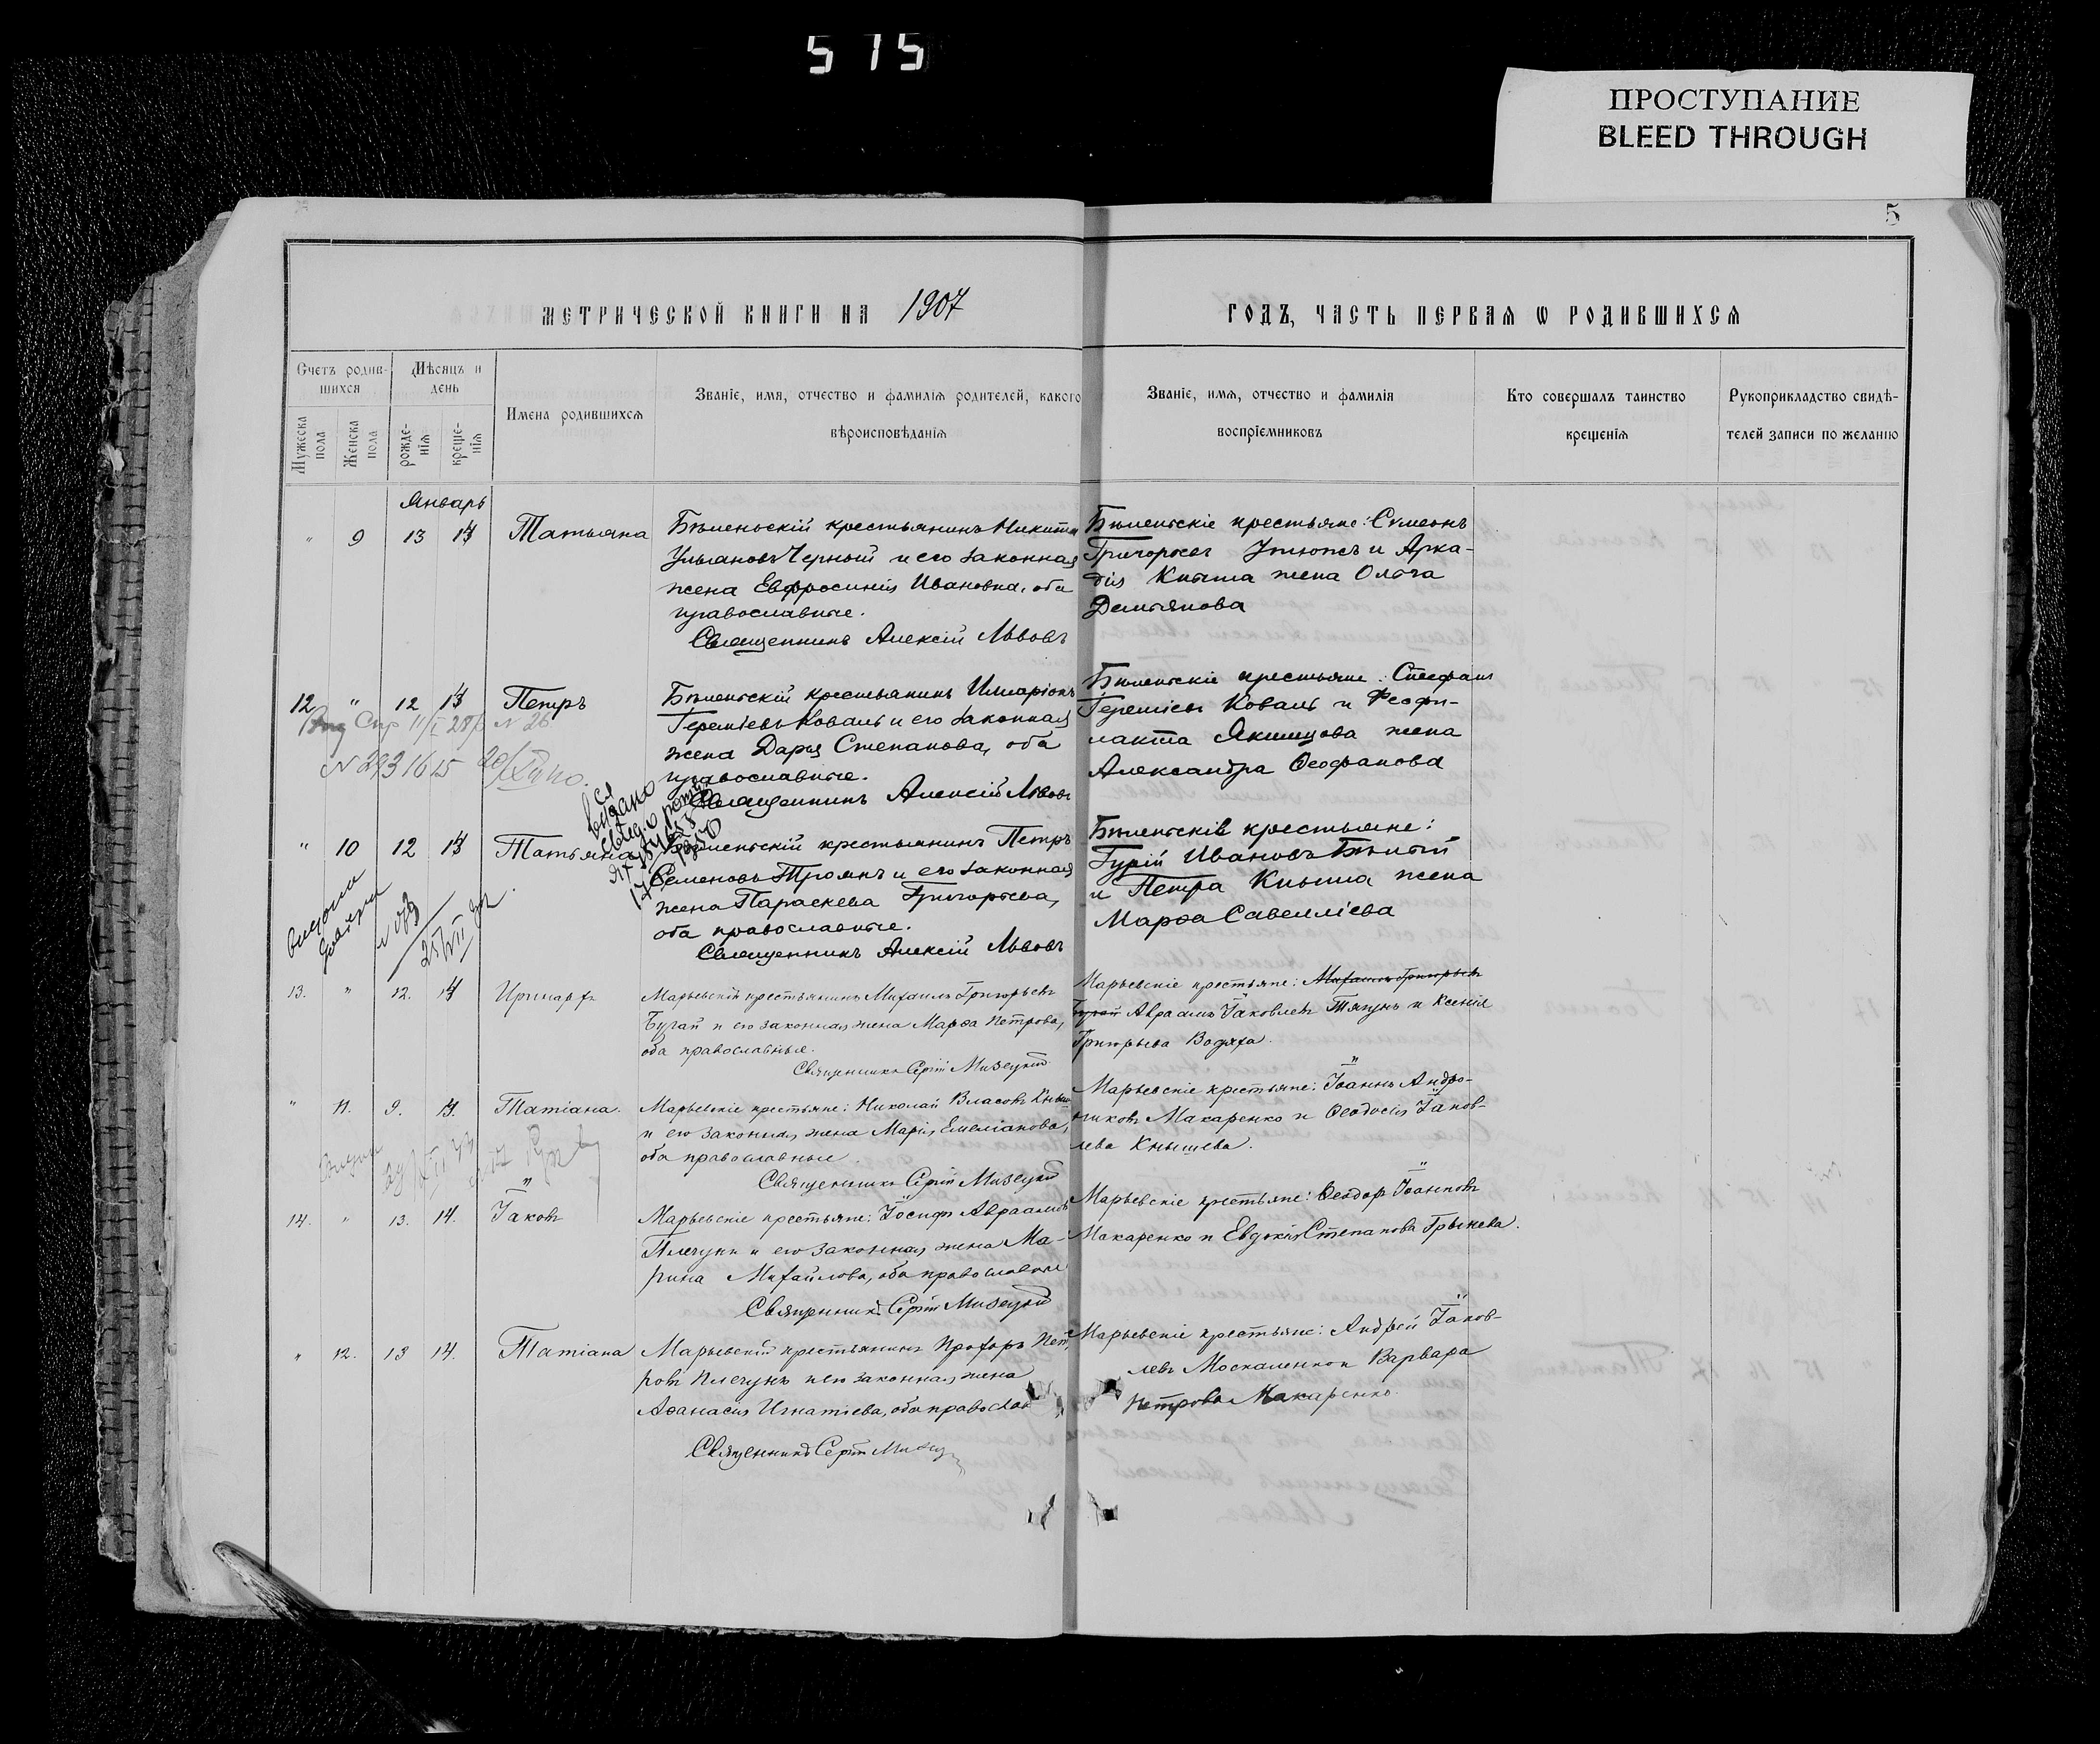 515
ПРОСТУПАНИЕ
BLEED THROUGH
5
МЕТРИЧЕСКОЙ КНИГИ НА 1907 ГОДЪ, ЧАСТЬ ПЕРВАЯ Ѡ РОДИВШИХСЯ
Счетъ родив-
шихся
Мѣсяцъ и
день
Мужеска
пола
Женска
пола
рожде-
нія
креще-
нія
Имена родившихся
Званіе, имя, отчество и фамилія родителей, какого
вѣроисповѣданія
Званіе, имя, отчество и фамилія
воспріемниковъ
Кто совершалъ таинство
крещенія
Рукоприкладство свидѣ-
телей записи по желанію
Январь
" 9 13 14 Татьяна
Бѣленьскій крестьянинъ Никита
Ульяновъ Черный и его законная
жена Евфросинія Ивановна, оба
православные.
Священникъ Алексій Львовъ
Бѣленьскіе крестьяне: Симеонъ
Григорьевъ и Арка-
дія Кныша жена Ольга
Демьянова
12 " 12 14 Петръ
№ 26
№ 293
Бѣленьскій крестьянинъ Илларіонъ
Іереміевъ Коваль и его законная
жена Дарья Степанова, оба
православные.
Священникъ Алексій Львовъ
Бѣленьскіе крестьяне: Стефанъ
Іереміевъ Коваль и Феофи-
лакта Якимцова жена
Александра Ѳеофанова
выдано
" 10 12 14 Татьяна
Бѣленьскій крестьянинъ Петръ
Семеновъ Троянъ и его законная
жена Параскева Григорьева,
оба православные.
Священникъ Алексій Львовъ
Бѣленьскіе крестьяне:
Гурій Ивановъ Бѣлый
и Петра Кныша жена
Марѳа Савелліева
13. " 12. 14 Иринархъ
Марьевскій крестьянинъ Михаилъ Григорьевъ
Бугай и его законная жена Марѳа Петрова,
оба православные.
Священникъ Сергій Мизецкій
Марьевскіе крестьяне: Михаилъ Григорьевъ
Бугай Авраамъ Іаковлевъ Тягунъ и Ксенія
Григорьева Водяха.
" 11. 9. 14. Татіана.
Марьевскіе крестьяне: Николай Власовъ Кныш
и его законная жена Марія Емеліанова,
оба православные.
Священникъ Сергій Мизецкій
Марьевскіе крестьяне: Іоаннъ Андро-
никовъ Макаренко и Ѳеодосія Іаков-
лева Кнышева.
14. " 13. 14. Іаковъ
Марьевскіе крестьяне: Іосифъ Авраамовъ
Плечунъ и его законная жена Ма-
рина Михайлова, оба православные
Священникъ Сергій Мизецкій
Марьевскіе крестьяне: Ѳеодоръ Іоанновъ
Макаренко и Евдокія Степанова Грынева.
" 12. 13 14. Татіана
Марьевскій крестьянинъ Прохоръ Пет-
ровъ Плечунъ и его законная жена
Аѳанасія Игнатіева, оба православ
Священникъ Сергій Мизец
Марьевскіе крестьяне: Андрей Іаков-
левъ Москаленко и Варвара
Петрова Макаренко.